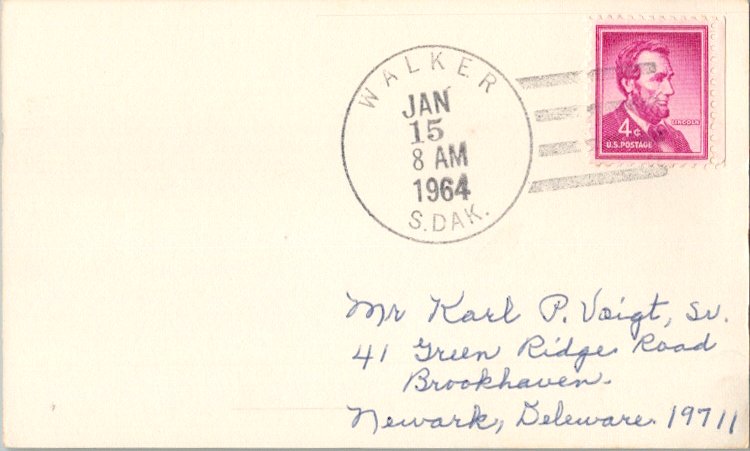 WALKER
JAN
15
8 AM
1964
S.DAK.
LINCOLN
4¢
U.S. POSTAGE
Mr Karl P. Voigt, Sr.
41 Green Ridge Road
Brookhaven.
Newark, Deleware. 19711